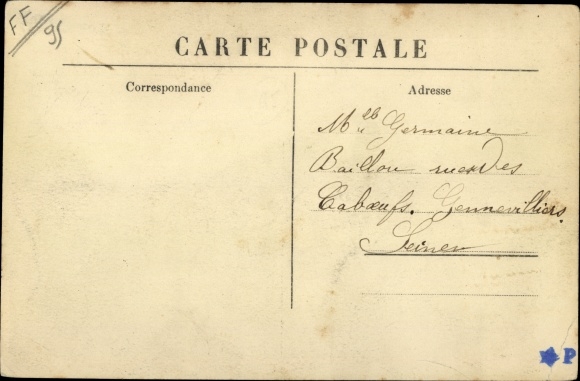 FF
95
CARTE POSTALE
Correspondance
Adresse
Mlle Germaine
Baillou rue des
Cabœufs. Gennevilliers.
Seine
P